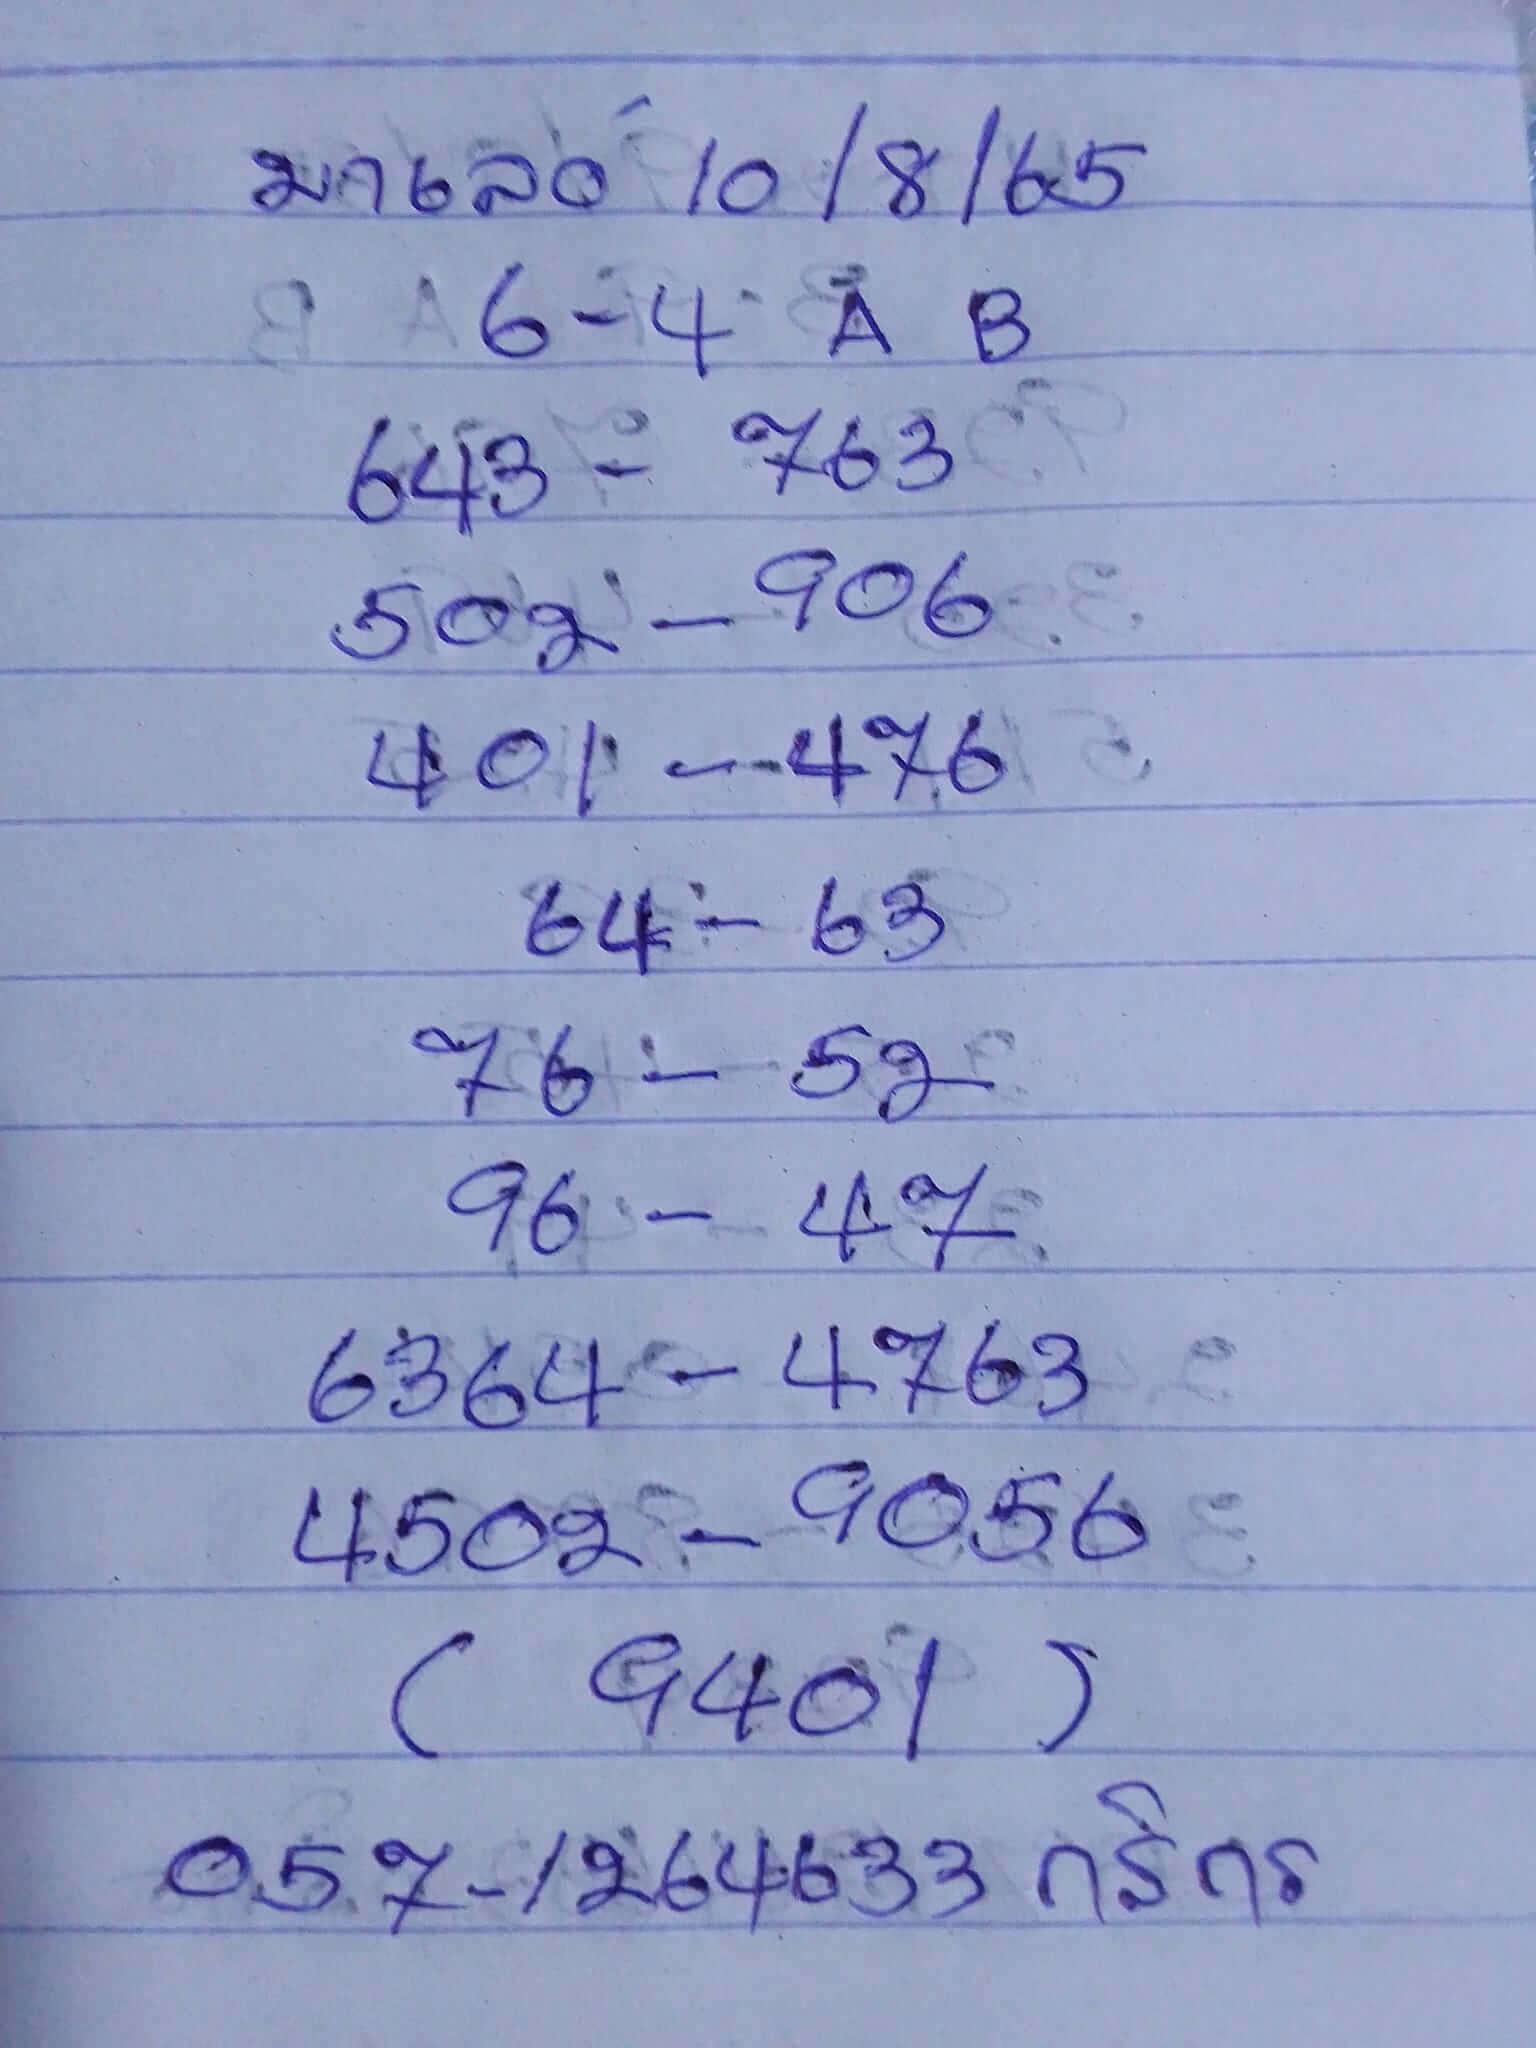 มาเลย์ 10/8/65
6-4 A B
643 - 763
502 - 906
401 - 476
64 - 63
76 - 52
96 - 47
6364 - 4763
4502 - 9056
( 9401 )
057-1264633